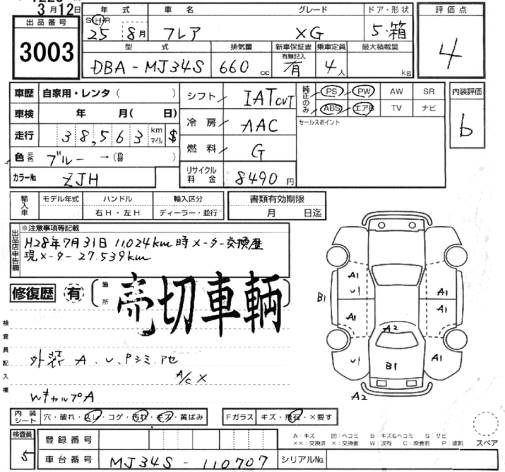 3月12日
出品番号
3003
年式
SHR
25
8月
車名
フレア
グレード
XG
ドア・形状
5・箱
評価点
4
型式
DBA-MJ34S
排気量
660cc
新車保証書
有無記入
有
乗車定員
4人
最大積載量
kg
車歴 自家用・レンタ( )
車検 年 月( 日)
走行 38,563 km マイル $
色 元色 ブルー →(替 )
カラーNo ZJH
シフト IAT CVT
冷房 AAC
燃料 G
リサイクル料金 8490円
純正のみ PS PW AW SR
ABS エアB TV ナビ
セールスポイント
内装評価
b
輸入車
モデル年式
ハンドル
右H・左H
輸入区分
ディーラー・並行
書類有効期限
月 日迄
出品店申告欄
※注意事項等記載
H28年7月31日 11024km時メーター交換歴
現メーター 27.539km
修復歴 有
箇所
売切車輌
検査員記入欄
外装 A.U.Pシミ アセ
A/C X
WキャルプA
A1 U1 B1 A1 A2 B1 A1 U1 A1 A2
内装シート 穴・破れ・しみ・コゲ・汚れ・キズ・黄ばみ
Fガラス キズ・飛石・X要す
検査員 5
登録番号
車台番号 MJ34S-110707
シリアルNo.
A キズ U 凹ヘコミ B キズ&ヘコミ S サビ
スペア